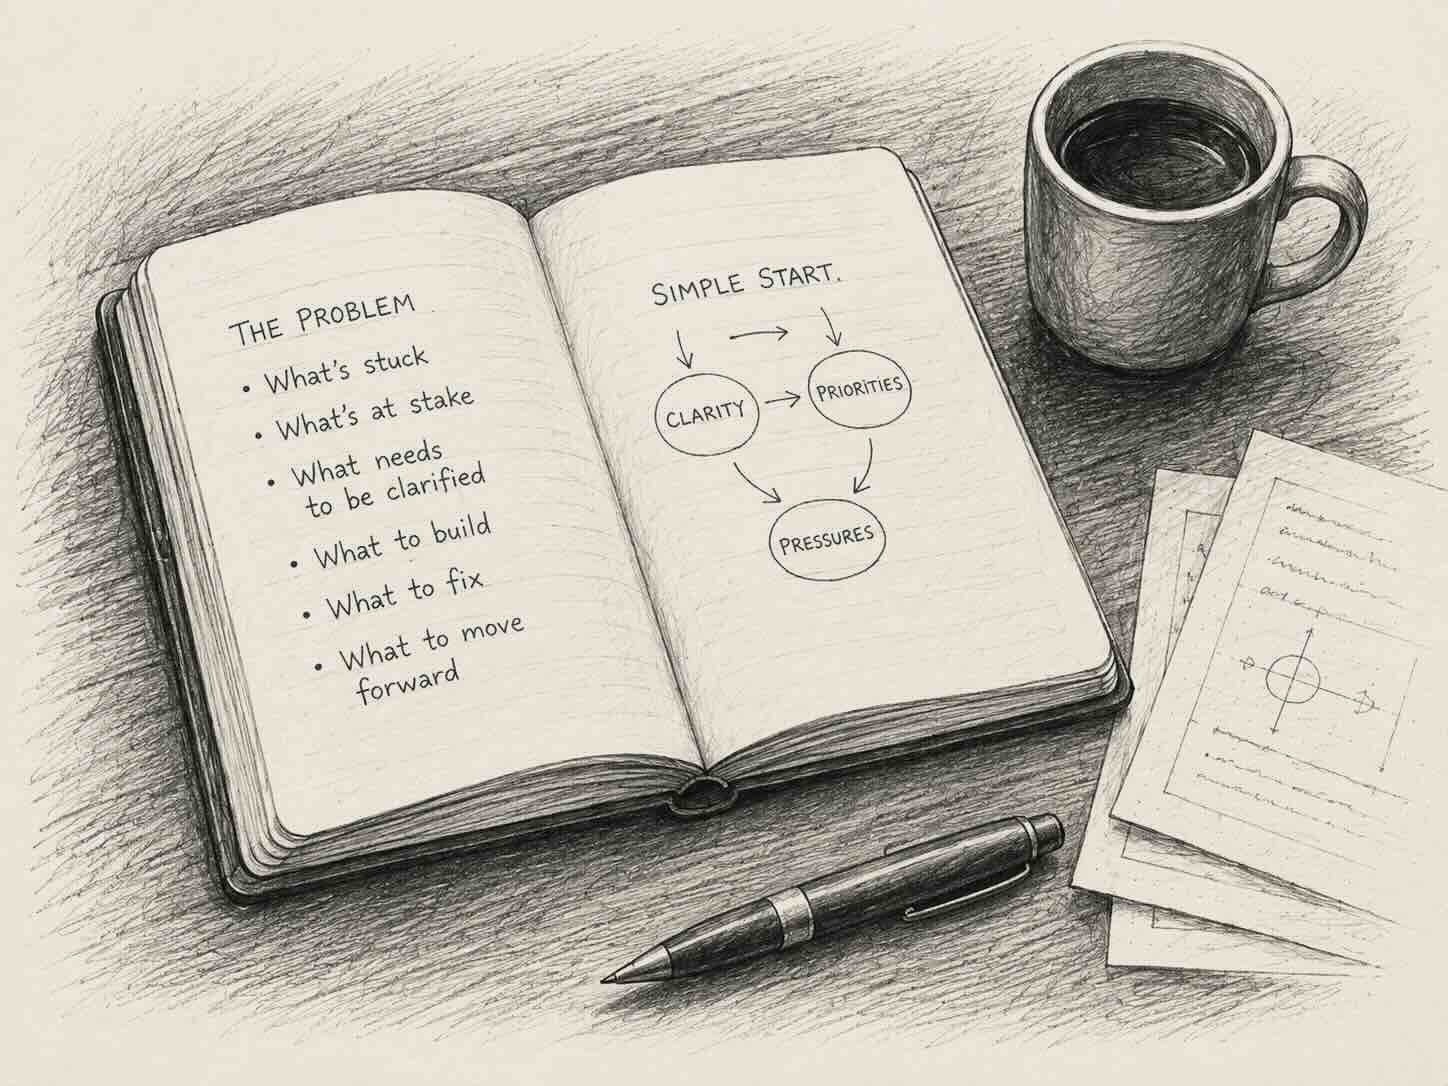 THE PROBLEM
• What's stuck
• What's at stake
• What needs
to be clarified
• What to build
• What to fix
• What to move
forward
SIMPLE START.
CLARITY
PRIORITIES
PRESSURES